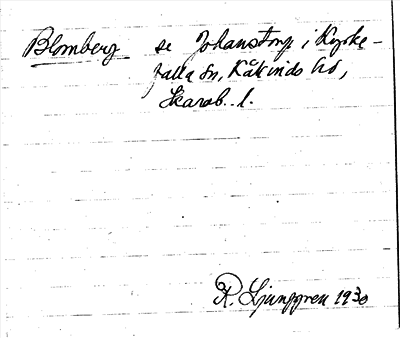 Blomberg se Johanstorp i Kyrke-
falla sn, Kåkinds hd,
Skarab. l.
R. Ljunggren 1930